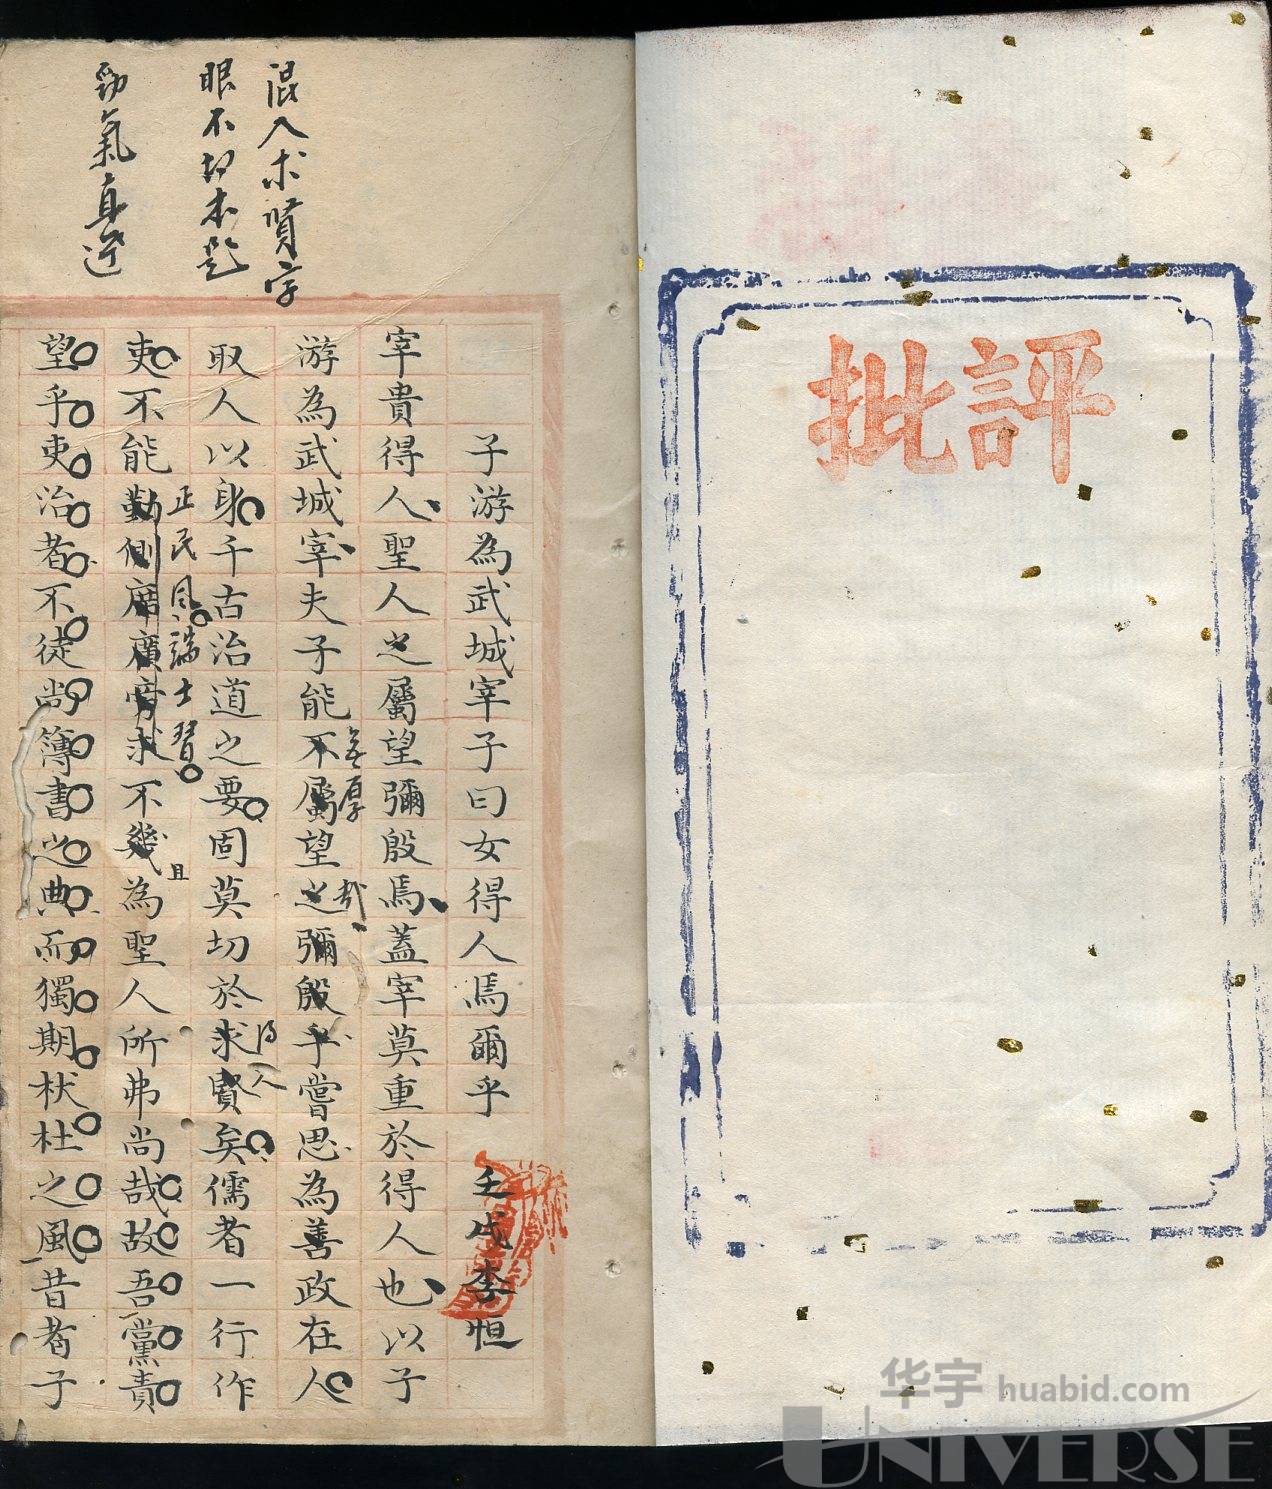 評批
混入求賢字
眼不切本題
勁氣直逆
子游為武城宰子曰女得人焉爾乎
壬戌李恒
宰貴得人聖人之屬望彌殷焉蓋宰莫重於得人也以子
游為武城宰夫子能不屬望之彌殷乎嘗思為善政在人
哉
取人以身千古治道之要固莫切於求賢矣儒者一行作
得人
吏不能勤側席廣旁求不幾為聖人所弗尚哉故吾黨責
正民風端士習
且
望乎吏治者不徒尚簿書之典而獨期杕杜之風昔者子
华宇 huabid.com
UNIVERSE